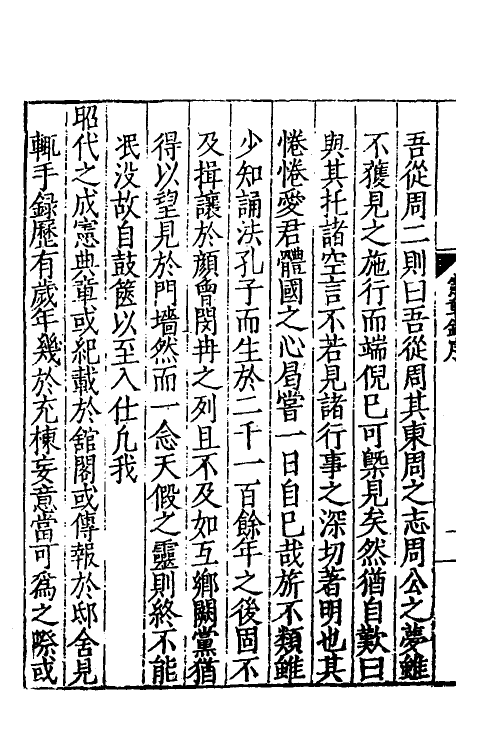 吾從周二則曰吾從周其東周之志周公之夢雖
不獲見之施行而端倪已可槩見矣然猶自歎曰
與其托諸空言不若見諸行事之深切著明也其
惓惓愛君體國之心曷嘗一日自已哉旂不類雖
少知誦法孔子而生於二千一百餘年之後固不
及揖讓於顔曾閔冉之列且不及如互鄉闕黨猶
得以望見於門墻然而一念天假之靈則終不能
泯没故自鼓篋以至入仕凢我
昭代之成憲典章或紀載於舘閣或傳報於邸舍見
輒手録歷有歲年幾於充棟妄意當可爲之際或
憲章録序